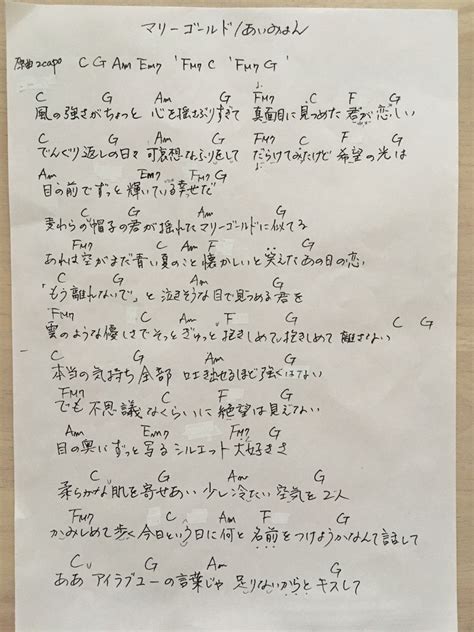 マリーゴールド/あいみょん
原曲2capo C G Am Em7 'FM7 C 'FM7 G'
C G Am G FM7 C F G
風の強さがちょっと 心を揺さぶりすぎて 真面目に見つめた 君が恋しい
C G Am G FM7 C F G
でんぐり返しの日々 可哀想なふりをして だらけてみたけど 希望の光は
Am Em7 FM7 G
目の前でずっと輝いている 幸せだ
C G Am G
麦わらの帽子の君が 揺れたマリーゴールドに似てる
FM7 C Am F G
あれは空がまだ青い夏のこと 懐かしいと笑えたあの日の恋
C G Am G
「もう離れないで」と泣きそうな目で見つめる君を
FM7 C Am F G C G
雲のような優しさでそっとぎゅっと抱きしめて 抱きしめて 離さない
C G Am G
本当の気持ち全部 吐き出せるほど強くはない
FM7 C F G
でも不思議なくらいに 絶望は見えない
Am Em7 FM7 G
目の奥にずっと写るシルエット 大好きさ
C G Am G
柔らかな肌を寄せあい 少し冷たい空気を2人
FM7 C Am F G
かみしめて歩く今日という日に何と 名前をつけようかなんて話して
C G Am G
ああ アイラブユーの言葉じゃ 足りないからとキスして